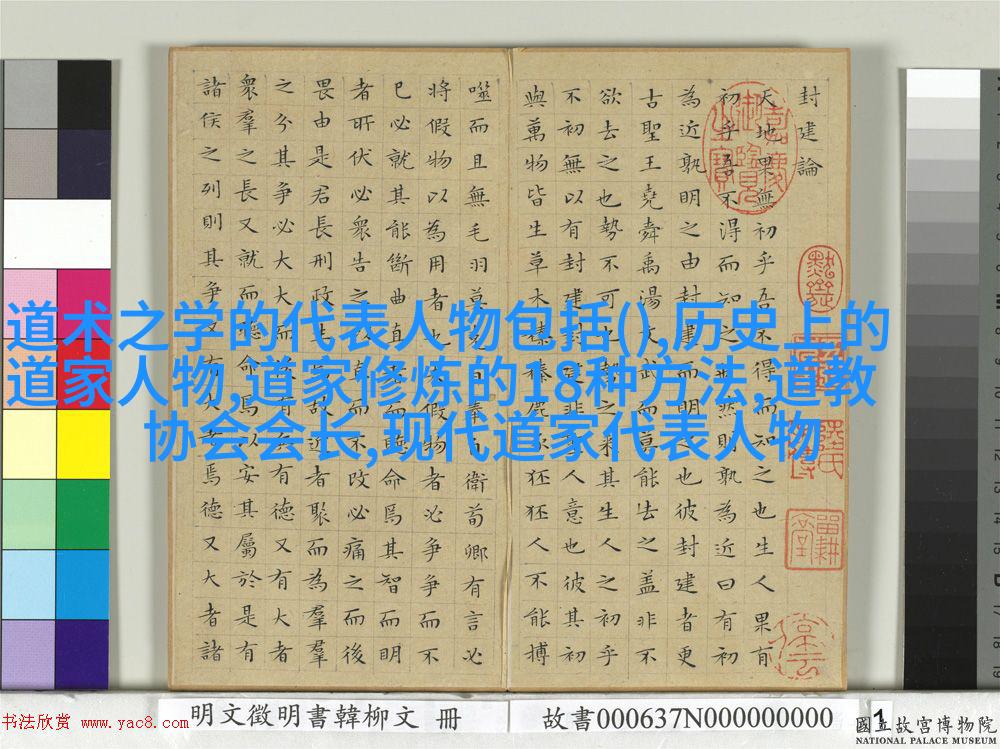 道术之学的代表人物包括(),历史上的
道家人物,道家修炼的18种方法,道教
协会会长,现代道家代表人物
封建論
天地果無初乎吾不得而知之也生人果有
初乎吾不得而知之也然則孰為近曰有初
為近孰明之由封建而明之也彼封建者更
古聖王堯舜禹湯文武而莫能去之蓋非不
欲去之也勢不可也勢之來其生人之初乎
不初無以有封建封建非聖人意也彼其初
與萬物皆生草木榛榛鹿豕狉狉人不能搏
噬而且無毛羽莫克自奉自衛荀卿有言必
將假物以為用者也夫假物者必爭爭而不
已必就其能斷曲直者而聽命焉其智而明
者所伏必衆告之以直而不改必痛之而後
畏由是君長刑政生焉故近者聚而為羣羣
之分其爭必大大而後有兵有德又有大者
衆羣之長又就而聽命焉以安其屬於是有
諸侯之列則其爭又有大者焉德又大者諸
嘉慶御覽之寶
明文徵明書韓柳文 冊
故書000637N000000000
1
书法欣赏 www.yac8.com
國立故宮博物院
NATIONAL PALACE MUSEUM